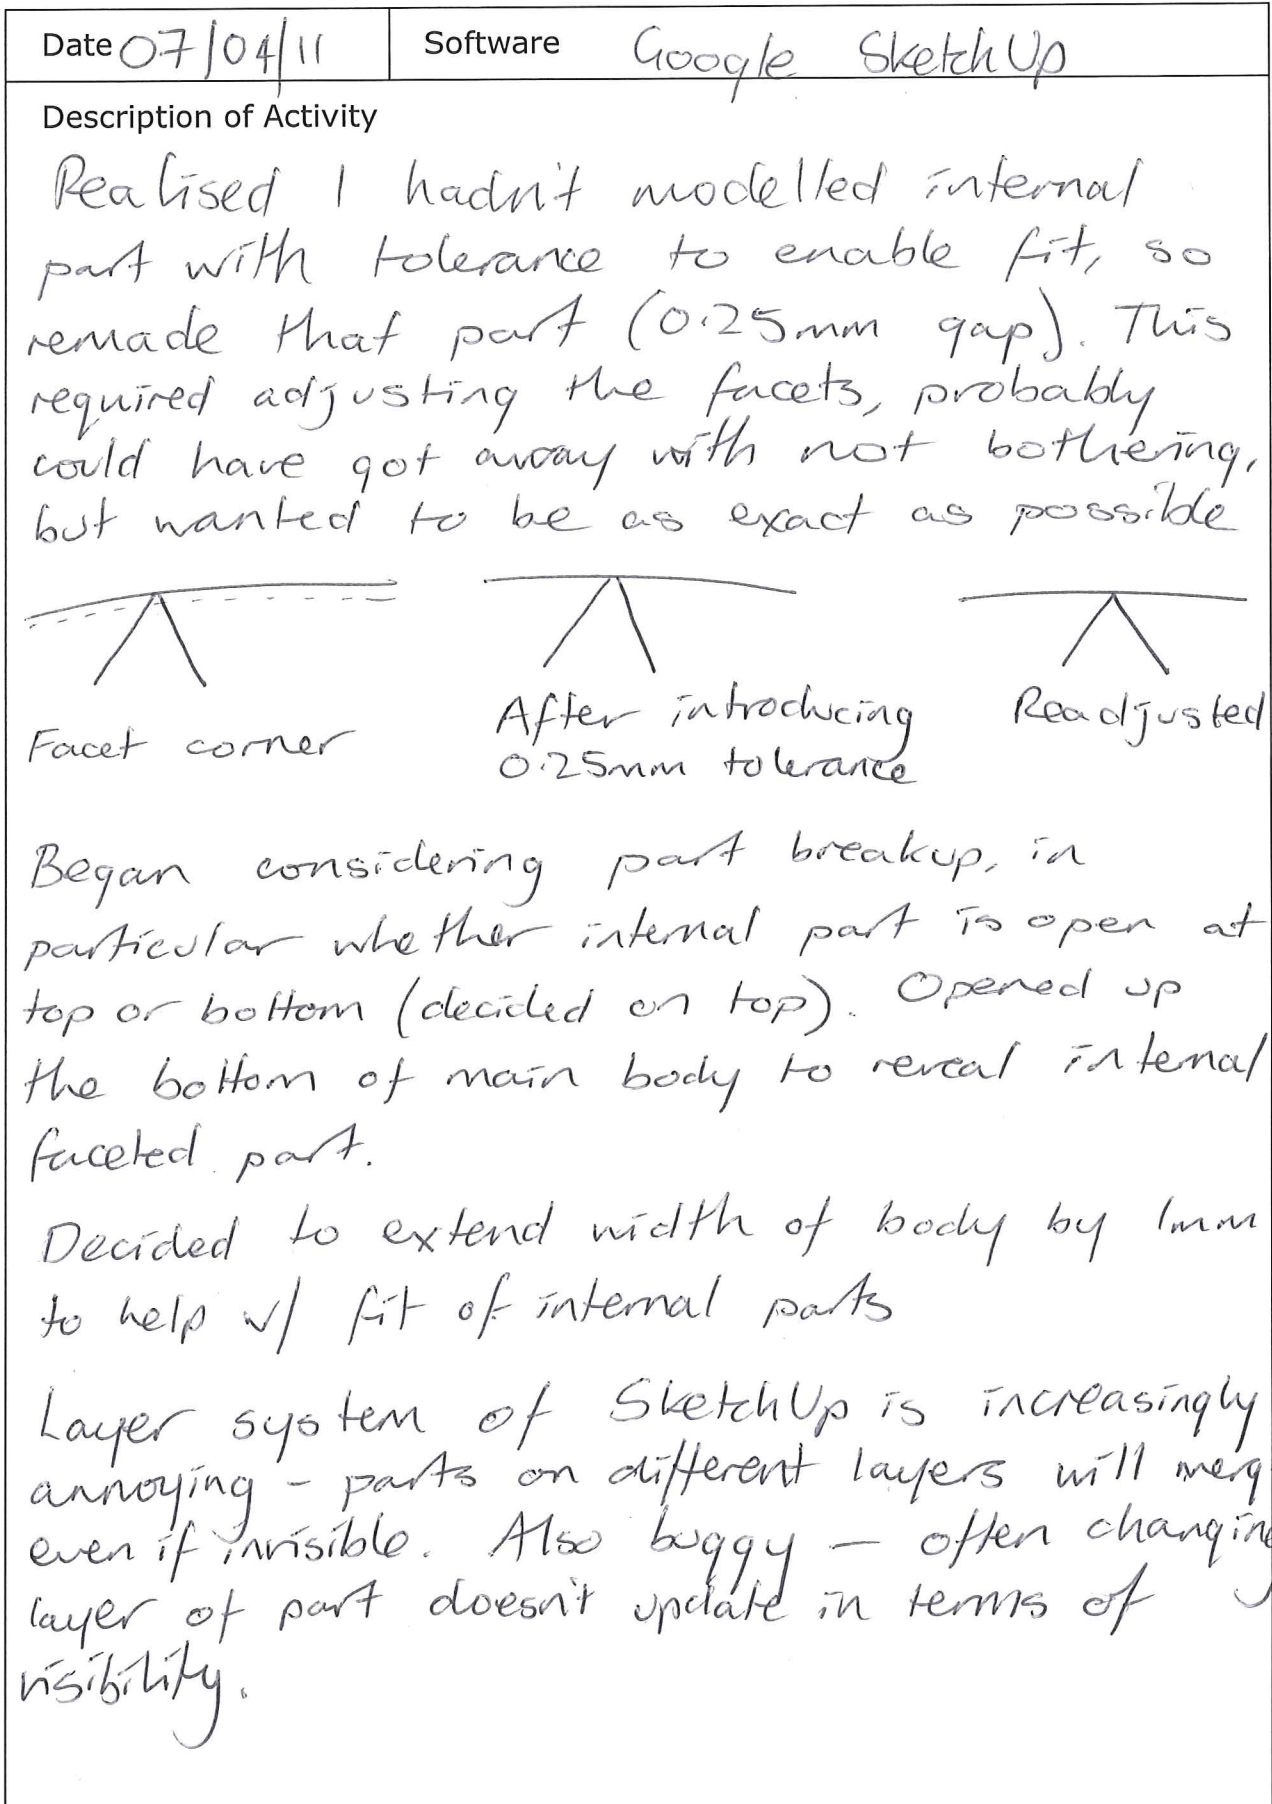 Date 07/04/11 Software Google SketchUp
Description of Activity
Realised I hadn't modelled internal
part with tolerance to enable fit, so
remade that part (0.25mm gap). This
required adjusting the facets, probably
could have got away with not bothering,
but wanted to be as exact as possible
Facet corner
After introducing
0.25mm tolerance
Readjusted
Began considering part breakup, in
particular whether internal part is open at
top or bottom (decided on top). Opened up
the bottom of main body to reveal internal
faceted part.
Decided to extend width of body by 1mm
to help w/ fit of internal parts
Layer system of SketchUp is increasingly
annoying - parts on different layers will merg
even if invisible. Also buggy - often changing
layer of part doesn't update in terms of
visibility.